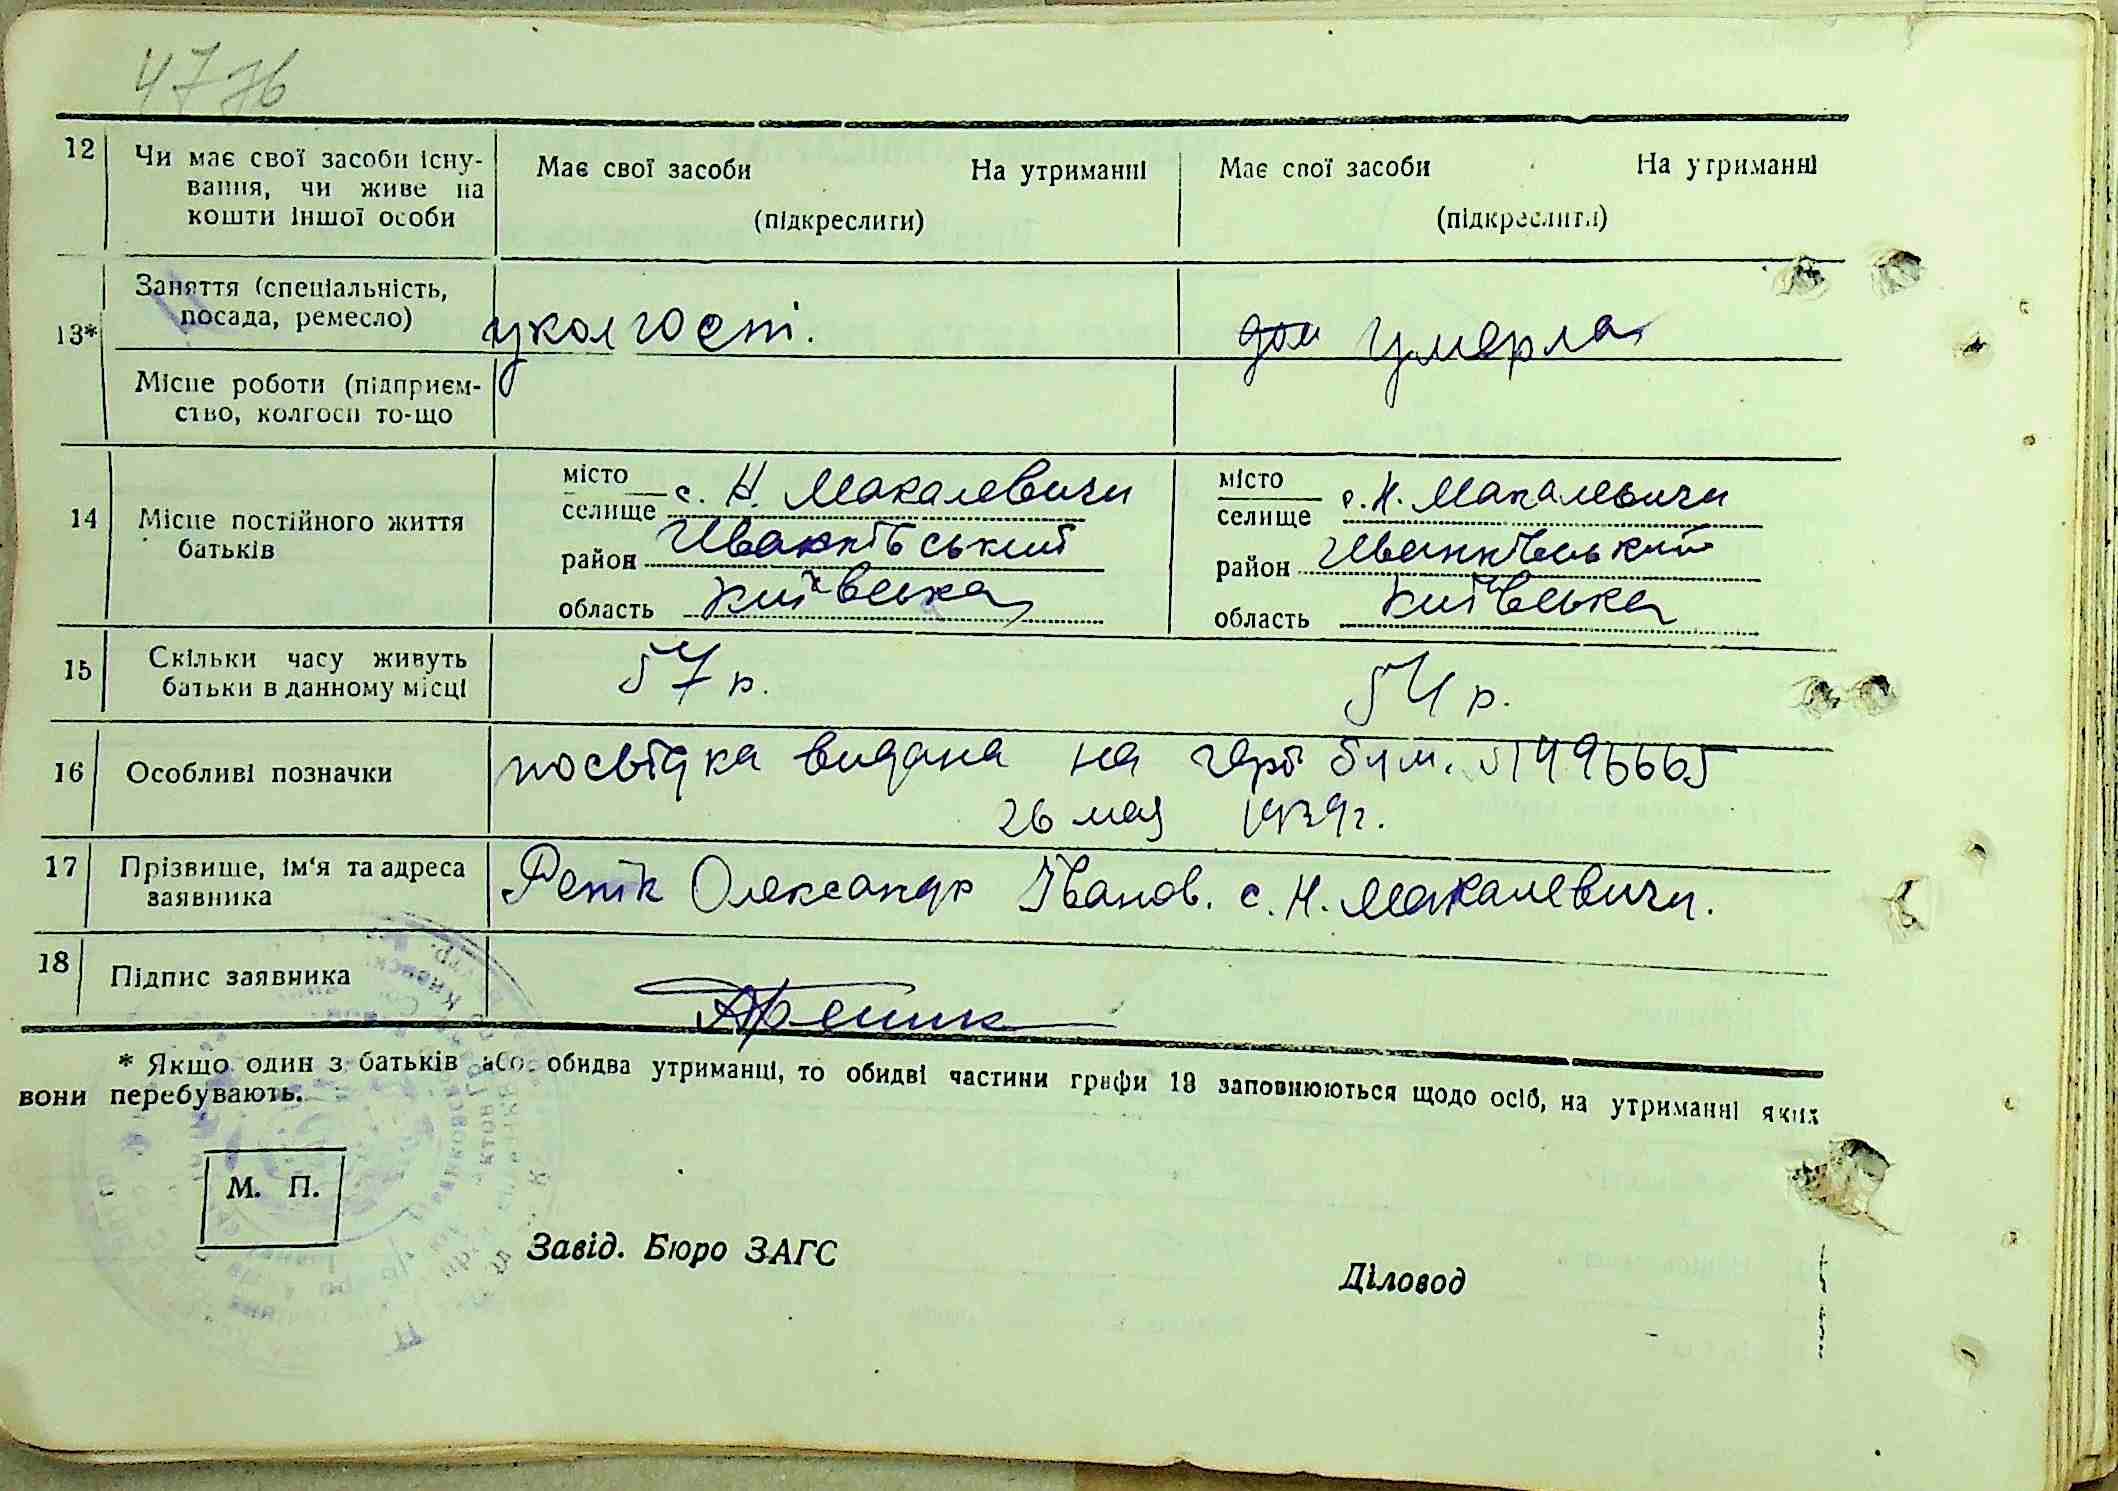 47 зв
12 Чи має свої засоби існу- Має свої засоби На утриманні Має свої засоби На утриманні
вання, чи живе на
кошти іншої особи (підкреслити) (підкреслити)
13* Заняття (спеціальність,
посада, ремесло) у колгості. дом умерла
Місце роботи (підприєм-
ство, колгосп то-що
14 Місце постійного життя батьків
місто селище с. Н. Макалевичи місто селище с. Н. Макалевичи
район Иванківський район Иванківський
область Київська область Київська
15 Скільки часу живуть 57 р. 54 р.
батьки в данному місці
16 Особливі позначки посвідка видана на герб бум.
26 мая 1939 г.
17 Прізвище, ім'я та адреса Репік Олександр Іванов. с. Н. Макалевичи.
заявника
18 Підпис заявника АРепик
* Якщо один з батьків або обидва утриманці, то обидві частини графи 13 заповнюються щодо осіб, на утриманні яких
вони перебувають.
М. П.
Завід. Бюро ЗАГС
Діловод